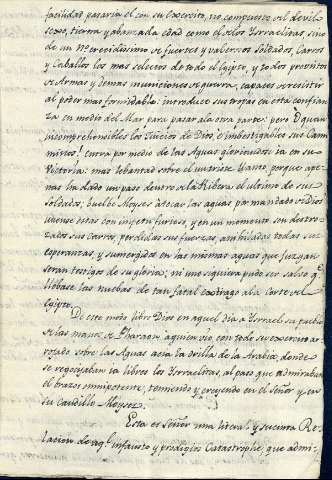 facilidad pasaria el con su Exercito, no compuesto de devil
sexo, tierna y abanzada edad como el de los Ysraelitas, sino
de un Nº crecidissimo de fuertes y valientes Soldados, Carros
y Caballos los mas selectos de todo el Egipto, y todos provistos
de Armas y demas municiones de guerra, capases de resistir
al poder mas formidable: introduce sus tropas en esta confian
za en medio del Mar para pasar ala otra parte: pero O quan
incomprehensibles los Juicios de Dios, e imbestigables sus Cam
minos! entra por medio de las Aguas gloriandose ia en su
Victoria: mas lebantad sobre el un triste llanto, porque ape
nas ha dado un paso dentro de la Ribera el ultimo de sus
Soldados, buelbe Moyses a tocar las aguas por mandado de Dios
unense estas con impetu furioso, y en un momento son destro
zados sus Carros, perdidas sus fuerzas, anihiladas todas sus
esperanzas, y sumergidos en las mismas aguas que juzgan
serian testigo de su gloria; ni uno siquiera pudo ser salvo q.
llebase las nuebas de tan fatal extrago ala Corte del
Egipto.
De este modo libro Dios en aquel dia a Ysrael su pueblo
de las manos de Pharaon aquien vio con todo su exercito ar
rojado sobre las Aguas acia la orilla de la Arabia, donde
se regocijaban ia libres los Ysraelitas, al paso que admiraban
el brazo omnipotente, temiendo y creyendo en el Señor y en
su Caudillo Moyses.
Esta es Señor una literal y sucinta Re
lacion de aql. infausto y prodigioso Catastrophe, que admi-